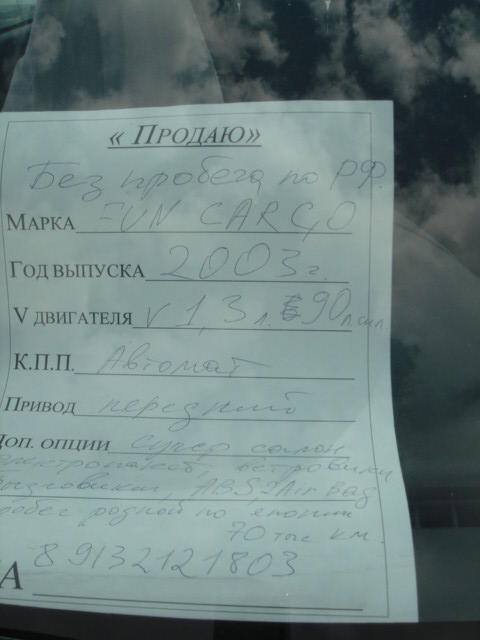 « ПРОДАЮ»
Без пробега по РФ.
МАРКА FUN CARGO
ГОД ВЫПУСКА 2003 г.
V ДВИГАТЕЛЯ V 1,3 л. 90 л.сил
К.П.П. Автомат
ПРИВОД передний
ДОП. ОПЦИИ супер салон
ветровики
ABS 2Air Bag
родной по японии
70 тыс км.
А 89132121803